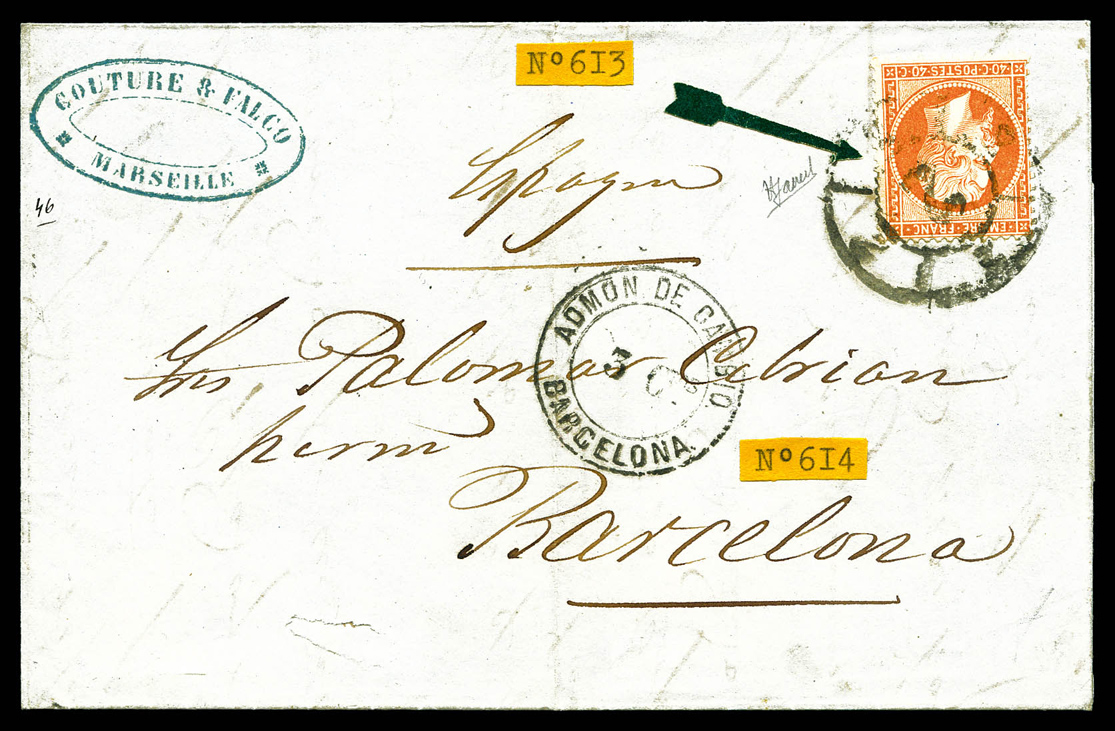 COUTURE & FALCO
MARSEILLE
Nº 613
40·C·POSTES·40·C
EMPIRE·FRANC·
46
Espagne
ADMON DE CAMBIO
3
BARCELONA
Sres Palomar Cebrian
herm
Nº 614
Barcelona